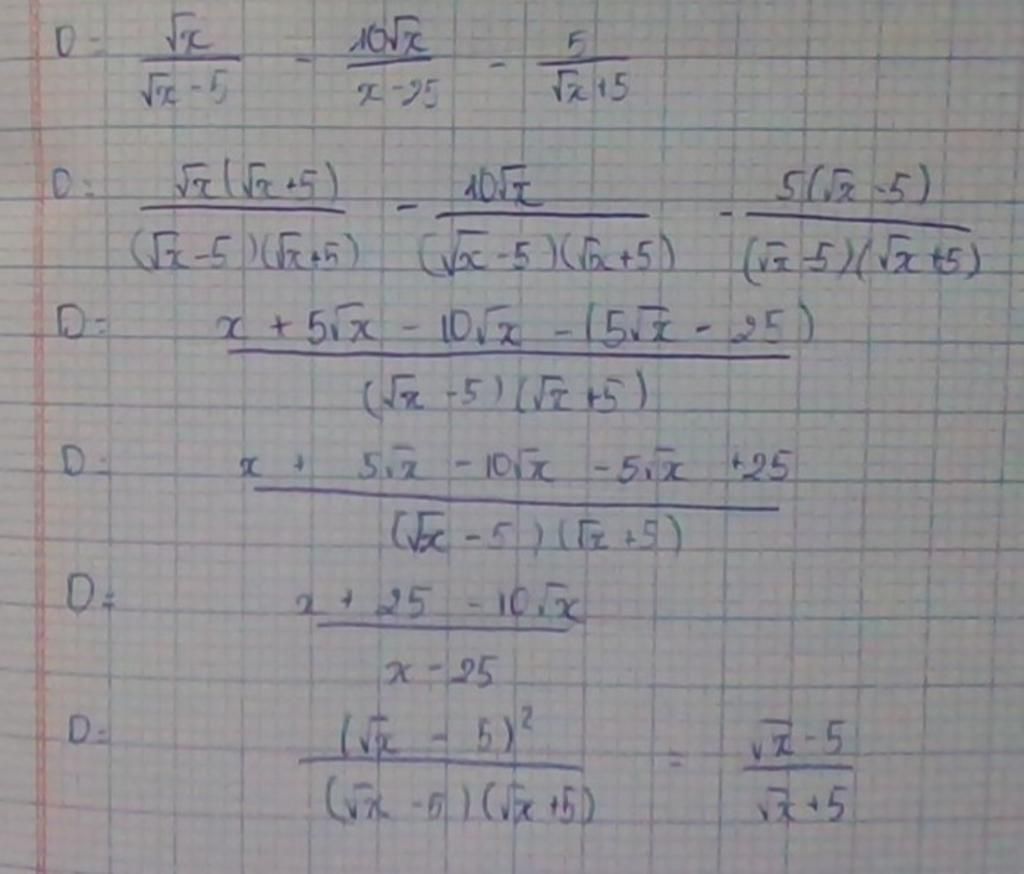 D = √x / (√x - 5) - 10√x / (x - 25) - 5 / (√x + 5)
D = √x(√x + 5) / (√x - 5)(√x + 5) - 10√x / (√x - 5)(√x + 5) - 5(√x - 5) / (√x - 5)(√x + 5)
D = x + 5√x - 10√x - (5√x - 25) / (√x - 5)(√x + 5)
D = x + 5√x - 10√x - 5√x + 25 / (√x - 5)(√x + 5)
D = x + 25 - 10√x / x - 25
D = (√x - 5)² / (√x - 5)(√x + 5) = √x - 5 / √x + 5